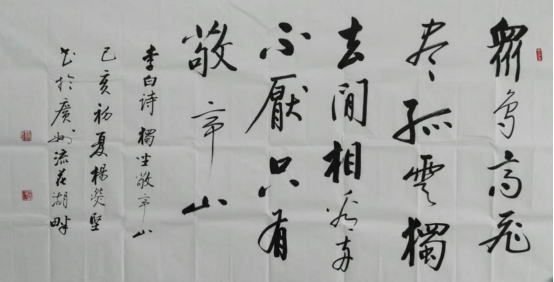 眾鳥高飛
盡孤雲獨
去閒相看兩
不厭只有
敬亭山
李白诗獨坐敬亭山
己亥初夏楊
书於廣州流花湖畔